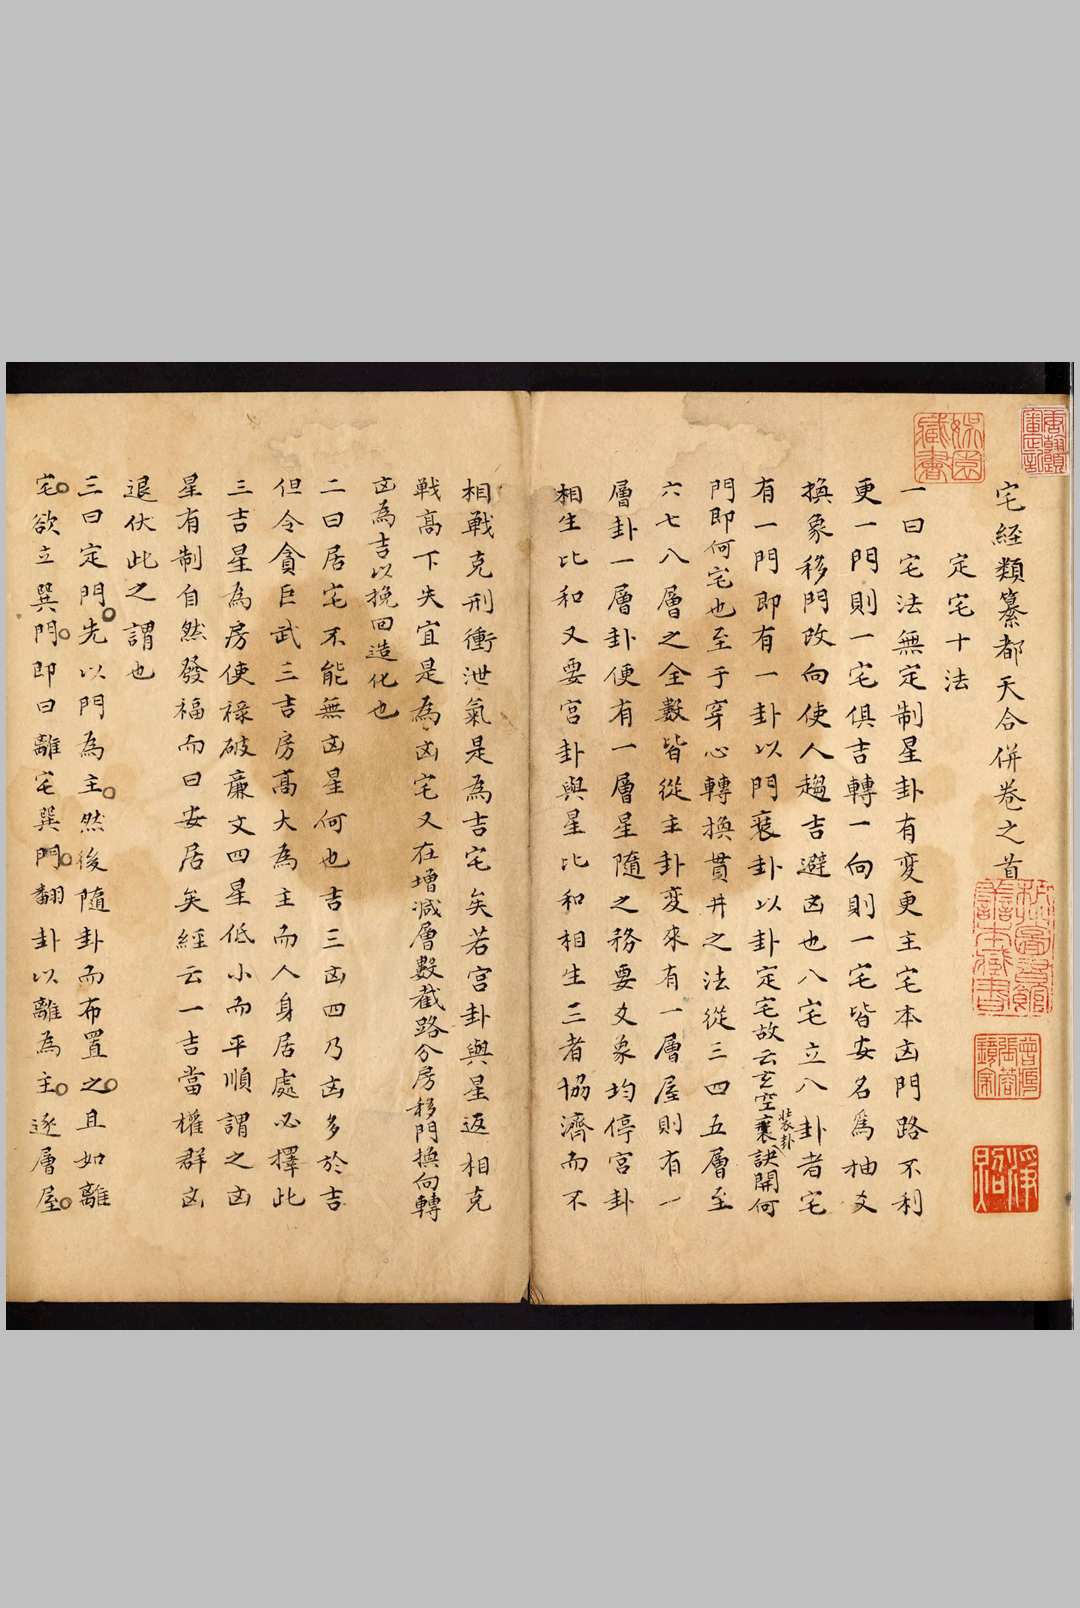 宅經類纂都天合併卷之首
定宅十法
一曰宅法無定制星卦有變更主宅本凶門路不利
更一門則一宅俱吉轉一向則一宅皆安名爲抽爻
換象移門改向使人趨吉避凶也八宅立八卦者宅
有一門即有一卦以門裝卦以卦定宅故云玄空裝卦訣開何
門即何宅也至于穿心轉換貫井之法從三四五層至
六七八層之全數皆從主卦變來有一層屋則有一
層卦一層卦便有一層星隨之務要爻象均停宮卦
相生比和又要宮卦與星比和相生三者協濟而不
相戰克刑衝泄氣是為吉宅矣若宮卦與星返相克
戰高下失宜是為凶宅又在增減層數截路分房移門換向轉
凶為吉以挽回造化也
二曰居宅不能無凶星何也吉三凶四乃凶多於吉
但令貪巨武三吉房高大為主而人身居處必擇此
三吉星為房使祿破廉文四星低小而平順謂之凶
星有制自然發福而曰安居矣經云一吉當權群凶
退伏此之謂也
三曰定門先以門為主然後隨卦而布置之且如離
宅欲立巽門即曰離宅巽門翻卦以離為主逐層屋
娛園藏書